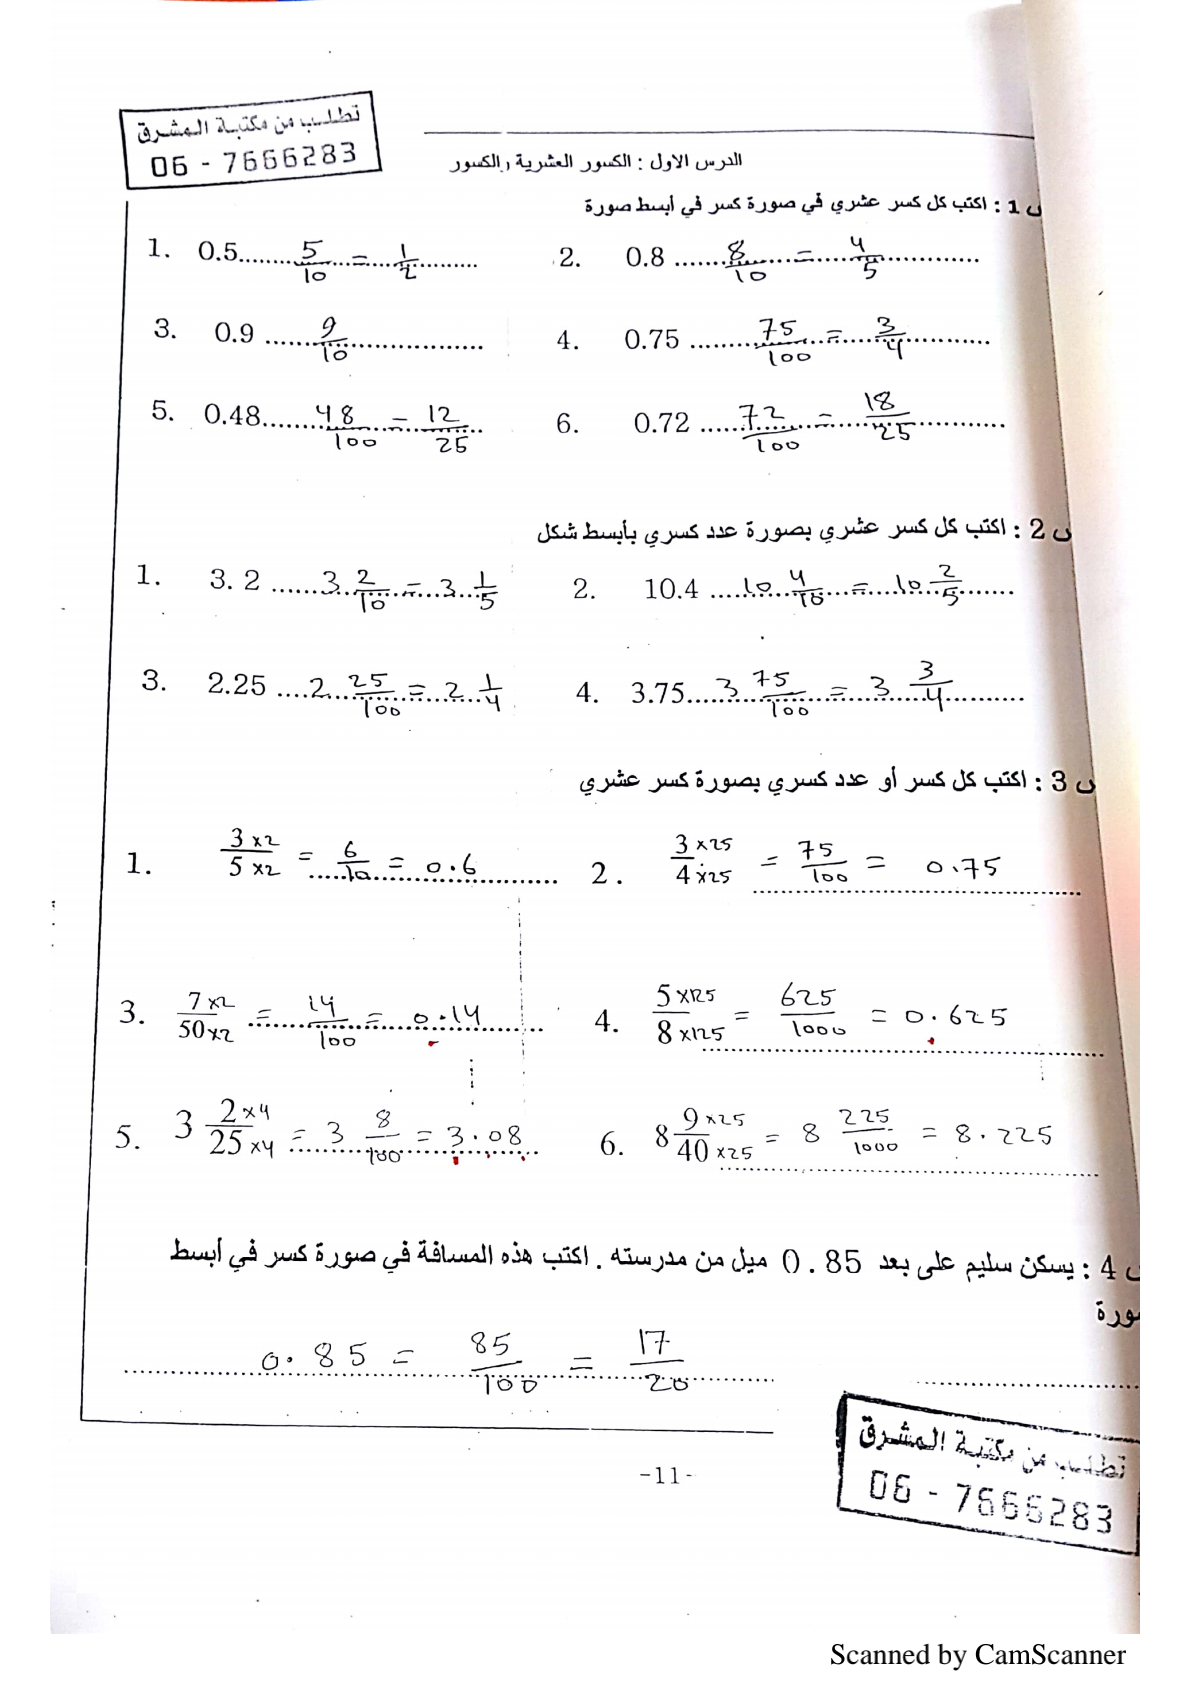 تطلب من مكتبة المشرق
06 - 7666283
الدرس الاول : الكسور العشرية والكسور
س 1 : اكتب كل كسر عشري في صورة كسر في أبسط صورة
1. 0.5 ........ 5/10 = 1/2 ........
2. 0.8 ........ 8/10 = 4/5 ........
3. 0.9 ........ 9/10 ........
4. 0.75 ........ 75/100 = 3/4 ........
5. 0.48 ........ 48/100 = 12/25 ..
6. 0.72 ........ 72/100 = 18/25 ........
س 2 : اكتب كل كسر عشري بصورة عدد كسري بأبسط شكل
1. 3. 2 ...... 3 2/10 = 3 1/5
2. 10.4 ...... 10 4/10 = 10 2/5 ......
3. 2.25 .... 2 25/100 = 2 1/4
4. 3.75 .... 3 75/100 = 3 3/4 ........
س 3 : اكتب كل كسر أو عدد كسري بصورة كسر عشري
1. 3×2/5×2 = 6/10 = 0.6
2. 3×25/4×25 = 75/100 = 0.75
3. 7×2/50×2 = 14/100 = 0.14
4. 5×125/8×125 = 625/1000 = 0.625
5. 3 2×4/25×4 = 3 8/100 = 3.08
6. 8 9×25/40×25 = 8 225/1000 = 8.225
س 4 : يسكن سليم على بعد 0.85 ميل من مدرسته . اكتب هذه المسافة في صورة كسر في أبسط
صورة
0.85 = 85/100 = 17/20
-11-
تطلب من مكتبة المشرق
06 - 7666283
Scanned by CamScanner